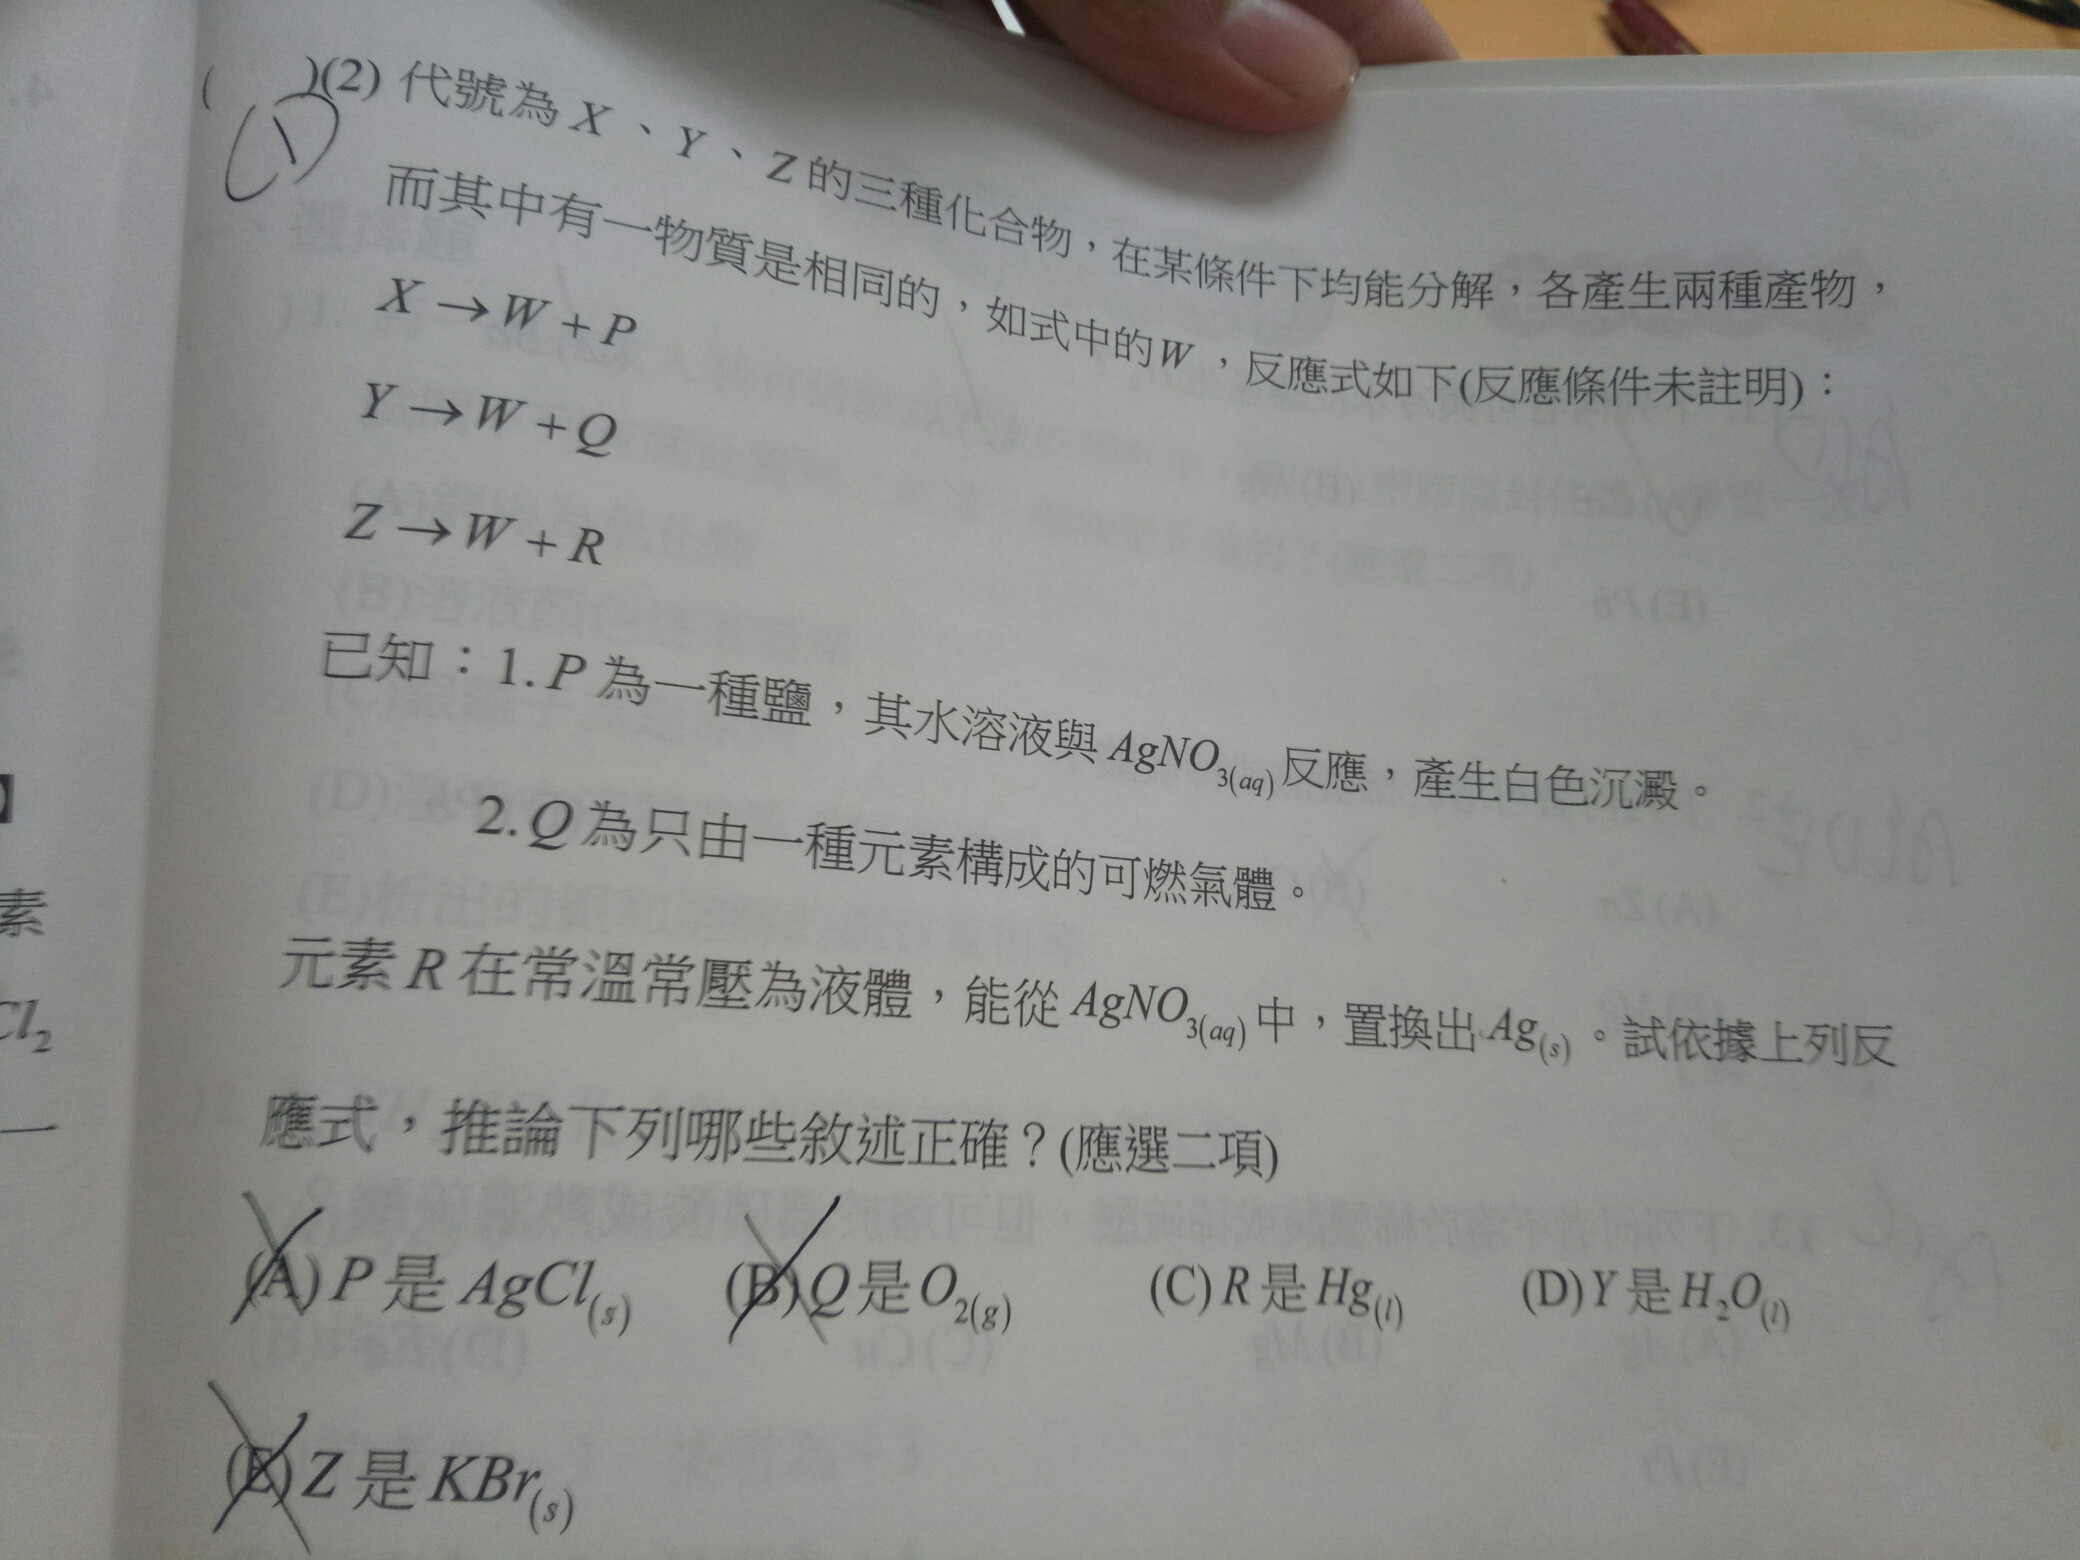 ( )(2) 代號為 X、Y、Z 的三種化合物，在某條件下均能分解，各產生兩種產物，
(1)
而其中有一物質是相同的，如式中的W，反應式如下(反應條件未註明)：
X → W + P
Y → W + Q
Z → W + R
已知：1. P 為一種鹽，其水溶液與 AgNO3(aq) 反應，產生白色沉澱。
2. Q 為只由一種元素構成的可燃氣體。
元素 R 在常溫常壓為液體，能從 AgNO3(aq) 中，置換出 Ag(s)。試依據上列反
應式，推論下列哪些敘述正確？(應選二項)
(A) P 是 AgCl(s) (B) Q 是 O2(g) (C) R 是 Hg(l) (D) Y 是 H2O(l)
(E) Z 是 KBr(s)
】
素
Cl2
一